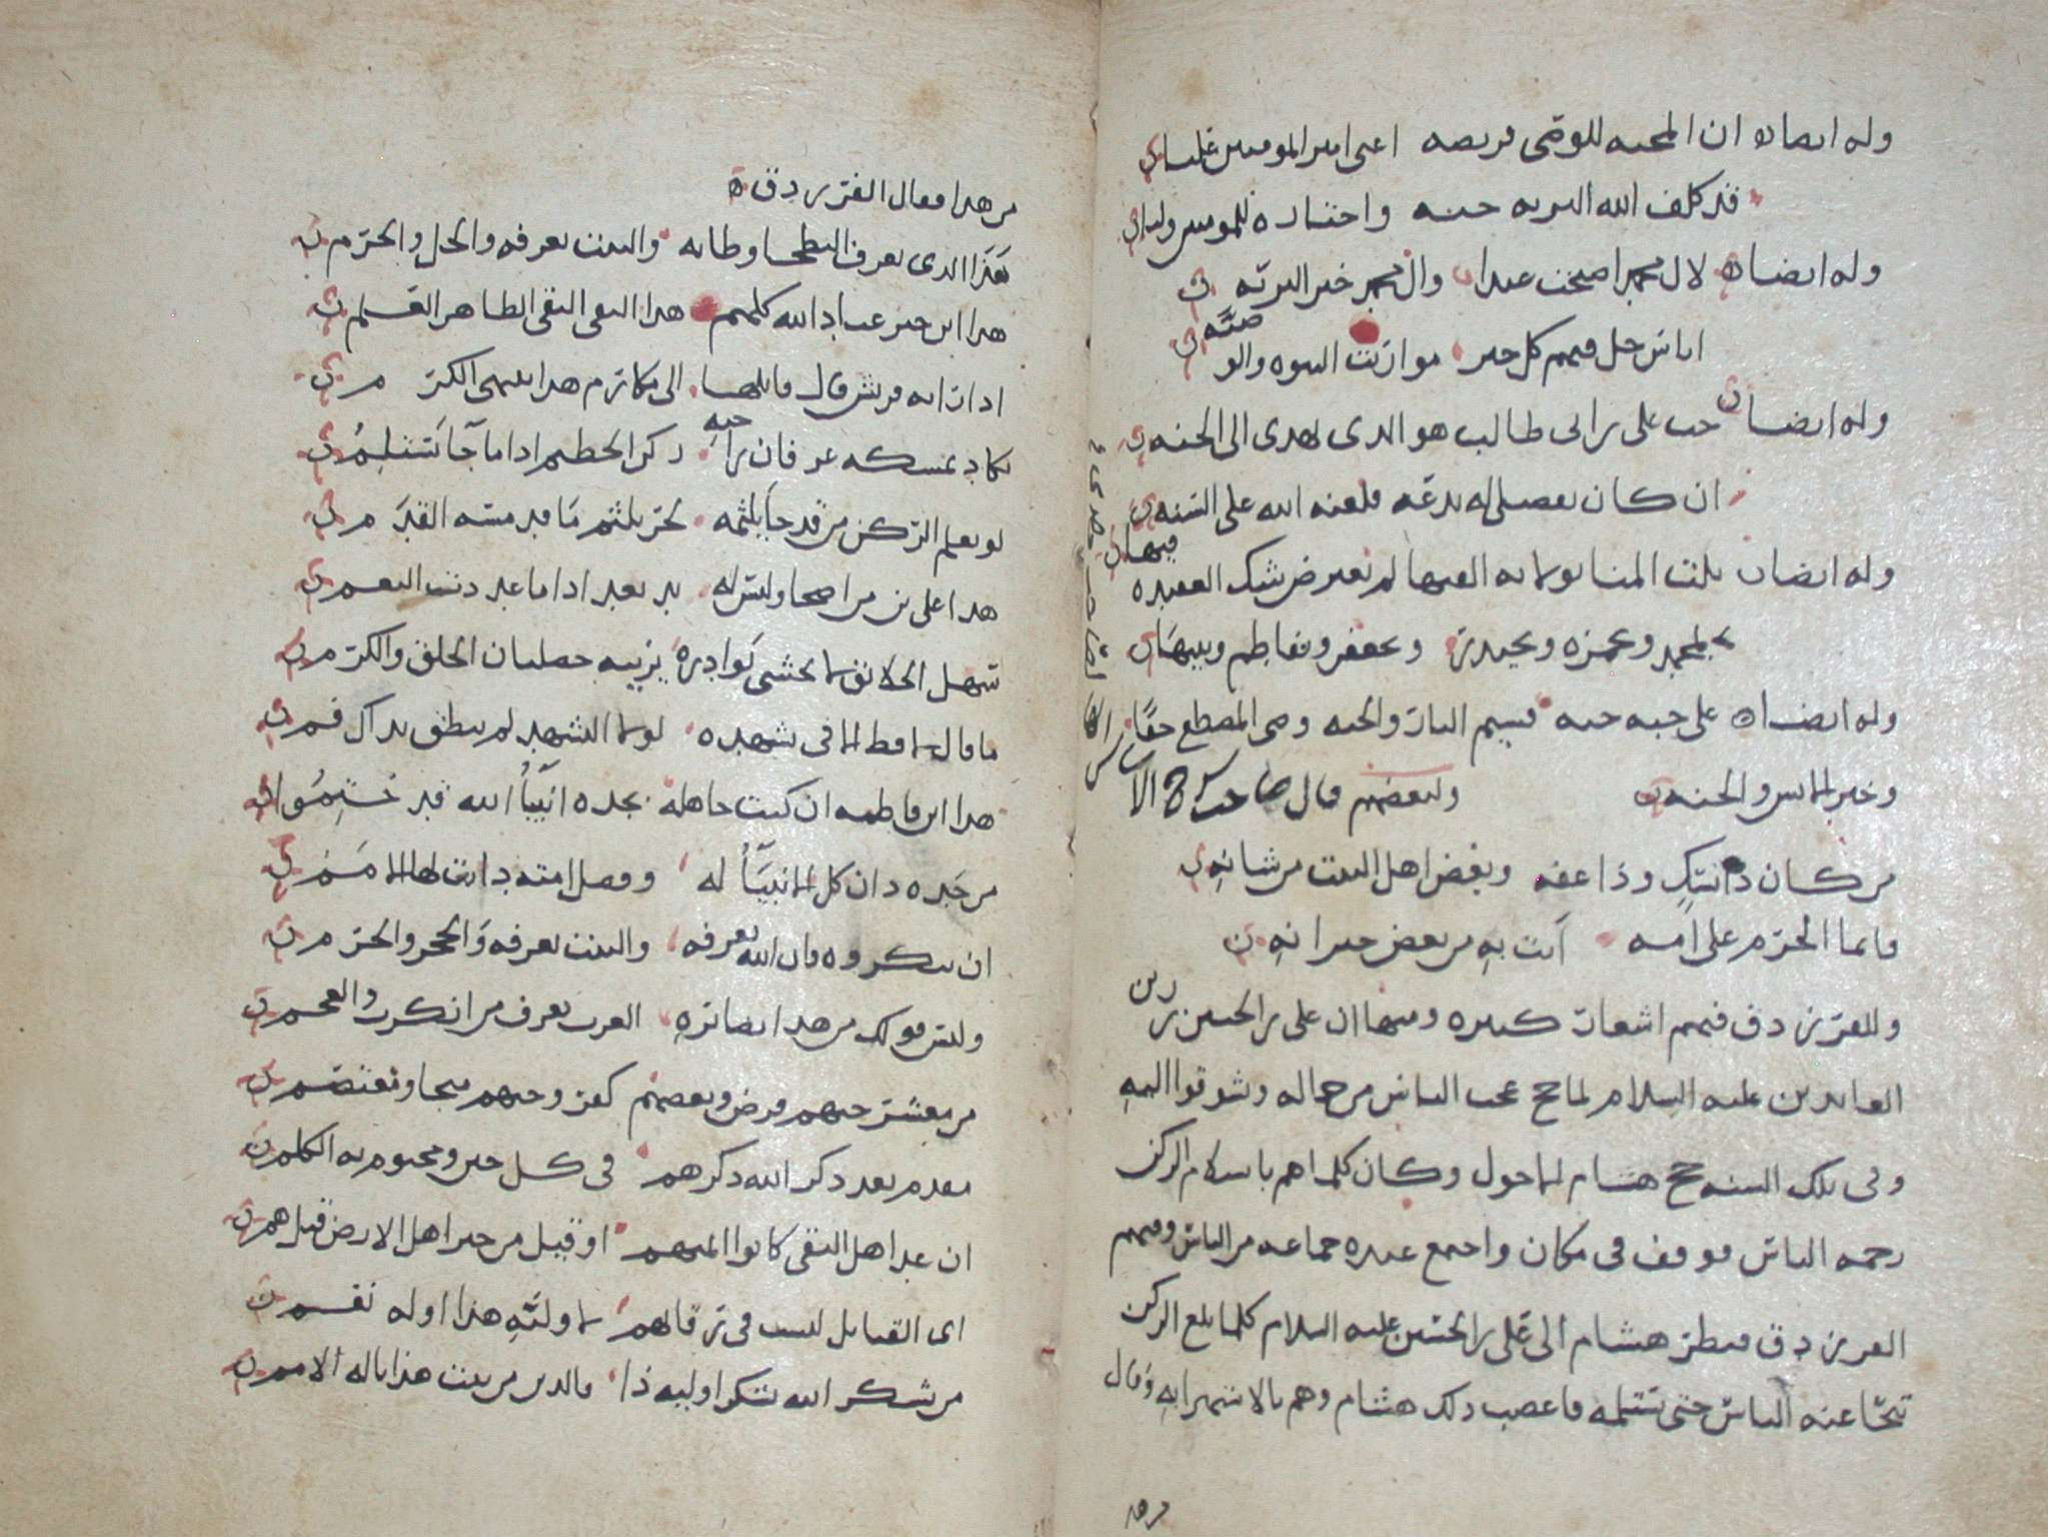 وله ايضاه ان المحبه للوصى فريضه اعنى امير المومنين عليا
قد كلف الله البريه حبه واختاره للمومنين وليا
وله ايضاه لال محمد اصبحت عبدا وال محمد خير البريّه
اناس حل فيهم كل خير مواريث النبوه والوصيّه
وله ايضا حب على بن ابى طالب هو الذى يهدى الى الجنه
ان كان تفضيلى له بدعه فلعنه الله على السّنه
وله ايضا
بمحمد وبحمزه وبحيدر وبجعفر وبفاطم وبنيها
وله ايضاه على حبه جنه قسيم النار والجنه وصى المصطفى حقّا امام
الانس والجنه ولبعضهم قال صاحب
من كان ذا نسك وذا عفه وبغض اهل البيت من شانهِ
فانما الجرم على امه اتت بهِ من بعض جيرانهِ
وللفرزدق فيهم اشعار كثيره ومنها ان على بن الحسين زين
العابدين عليه السلام لما حج عجب الناس من جماله وشوقوا اليه
وفى تلك السنه حج هشام الاحول وكان كلما هم باستلام الركن
زحمه الناس فوقف فى مكان واجتمع عنده جماعه من الناس وفيهم
الفرزدق فنظر هشام الى على بن الحسين عليه السلام كلما بلغ الركن
تنحّا عنه الناس حتى يستلمه فاغضب ذلك هشام وقال
من هذا
من هذا فقال الفرزدق ه
هَذَا الذى يعرف البطحا وطاته والبيت يعرفه والحل والحرم
هذا ابن خير عباد الله كلهم هذا التقى النقى الطاهر العَلم
اذا راته قريش قال قايلها الى مكارم هذا ينتهى الكرم
يكاد يمسكه عرفان راحته ركن الحطيم اذا ما جا يَستلِمُ
لو يعلم الركن من قد جا يلثمه لخر يلثم مَا قد مسّه القدَم
سهل الخلائق لا تخشى بَوادره يزينه خصلتان الخلق والكرم
ما قال لا قط الا فى تشهده لولا التشهد لم ينطق بذاك فم
هذا ابن فاطمه ان كنت جاهله بجده انبيَآُ الله قد خُتِمُوا
من جَده دان كل الانبيَآُ له وفضل امته دانت لها الامَم
ان تنكروه فان الله يعرفه والبيت يعرفه وَالحجر والحرم
وليس قولك من هذا بضائره العرب تعرف من انكرت والعجم
من معشر حبهم فرض وبغضهم كفر وحبهم منجا ومعتصم
مقدم بعد ذكر الله ذكرهم فى كل حين ومختوم به الكلم
ان عد اهل التقى كانوا ائمتهم او قيل من خير اهل الارض قيل هم
اى القبائل ليست فى رقابهم لاوليّهِ هذا او له نعم
من يشكر الله يشكر اوليه ذا فالدين من بيت هذا ناله الامم